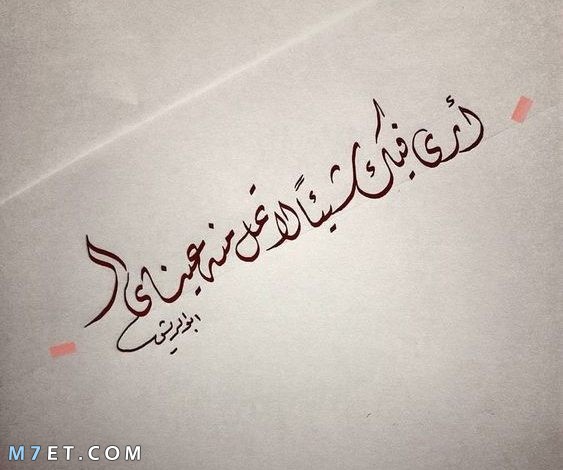 أرى فيك شيئاً لا تمل منه عيناي
ابو الريش
M7ET.COM